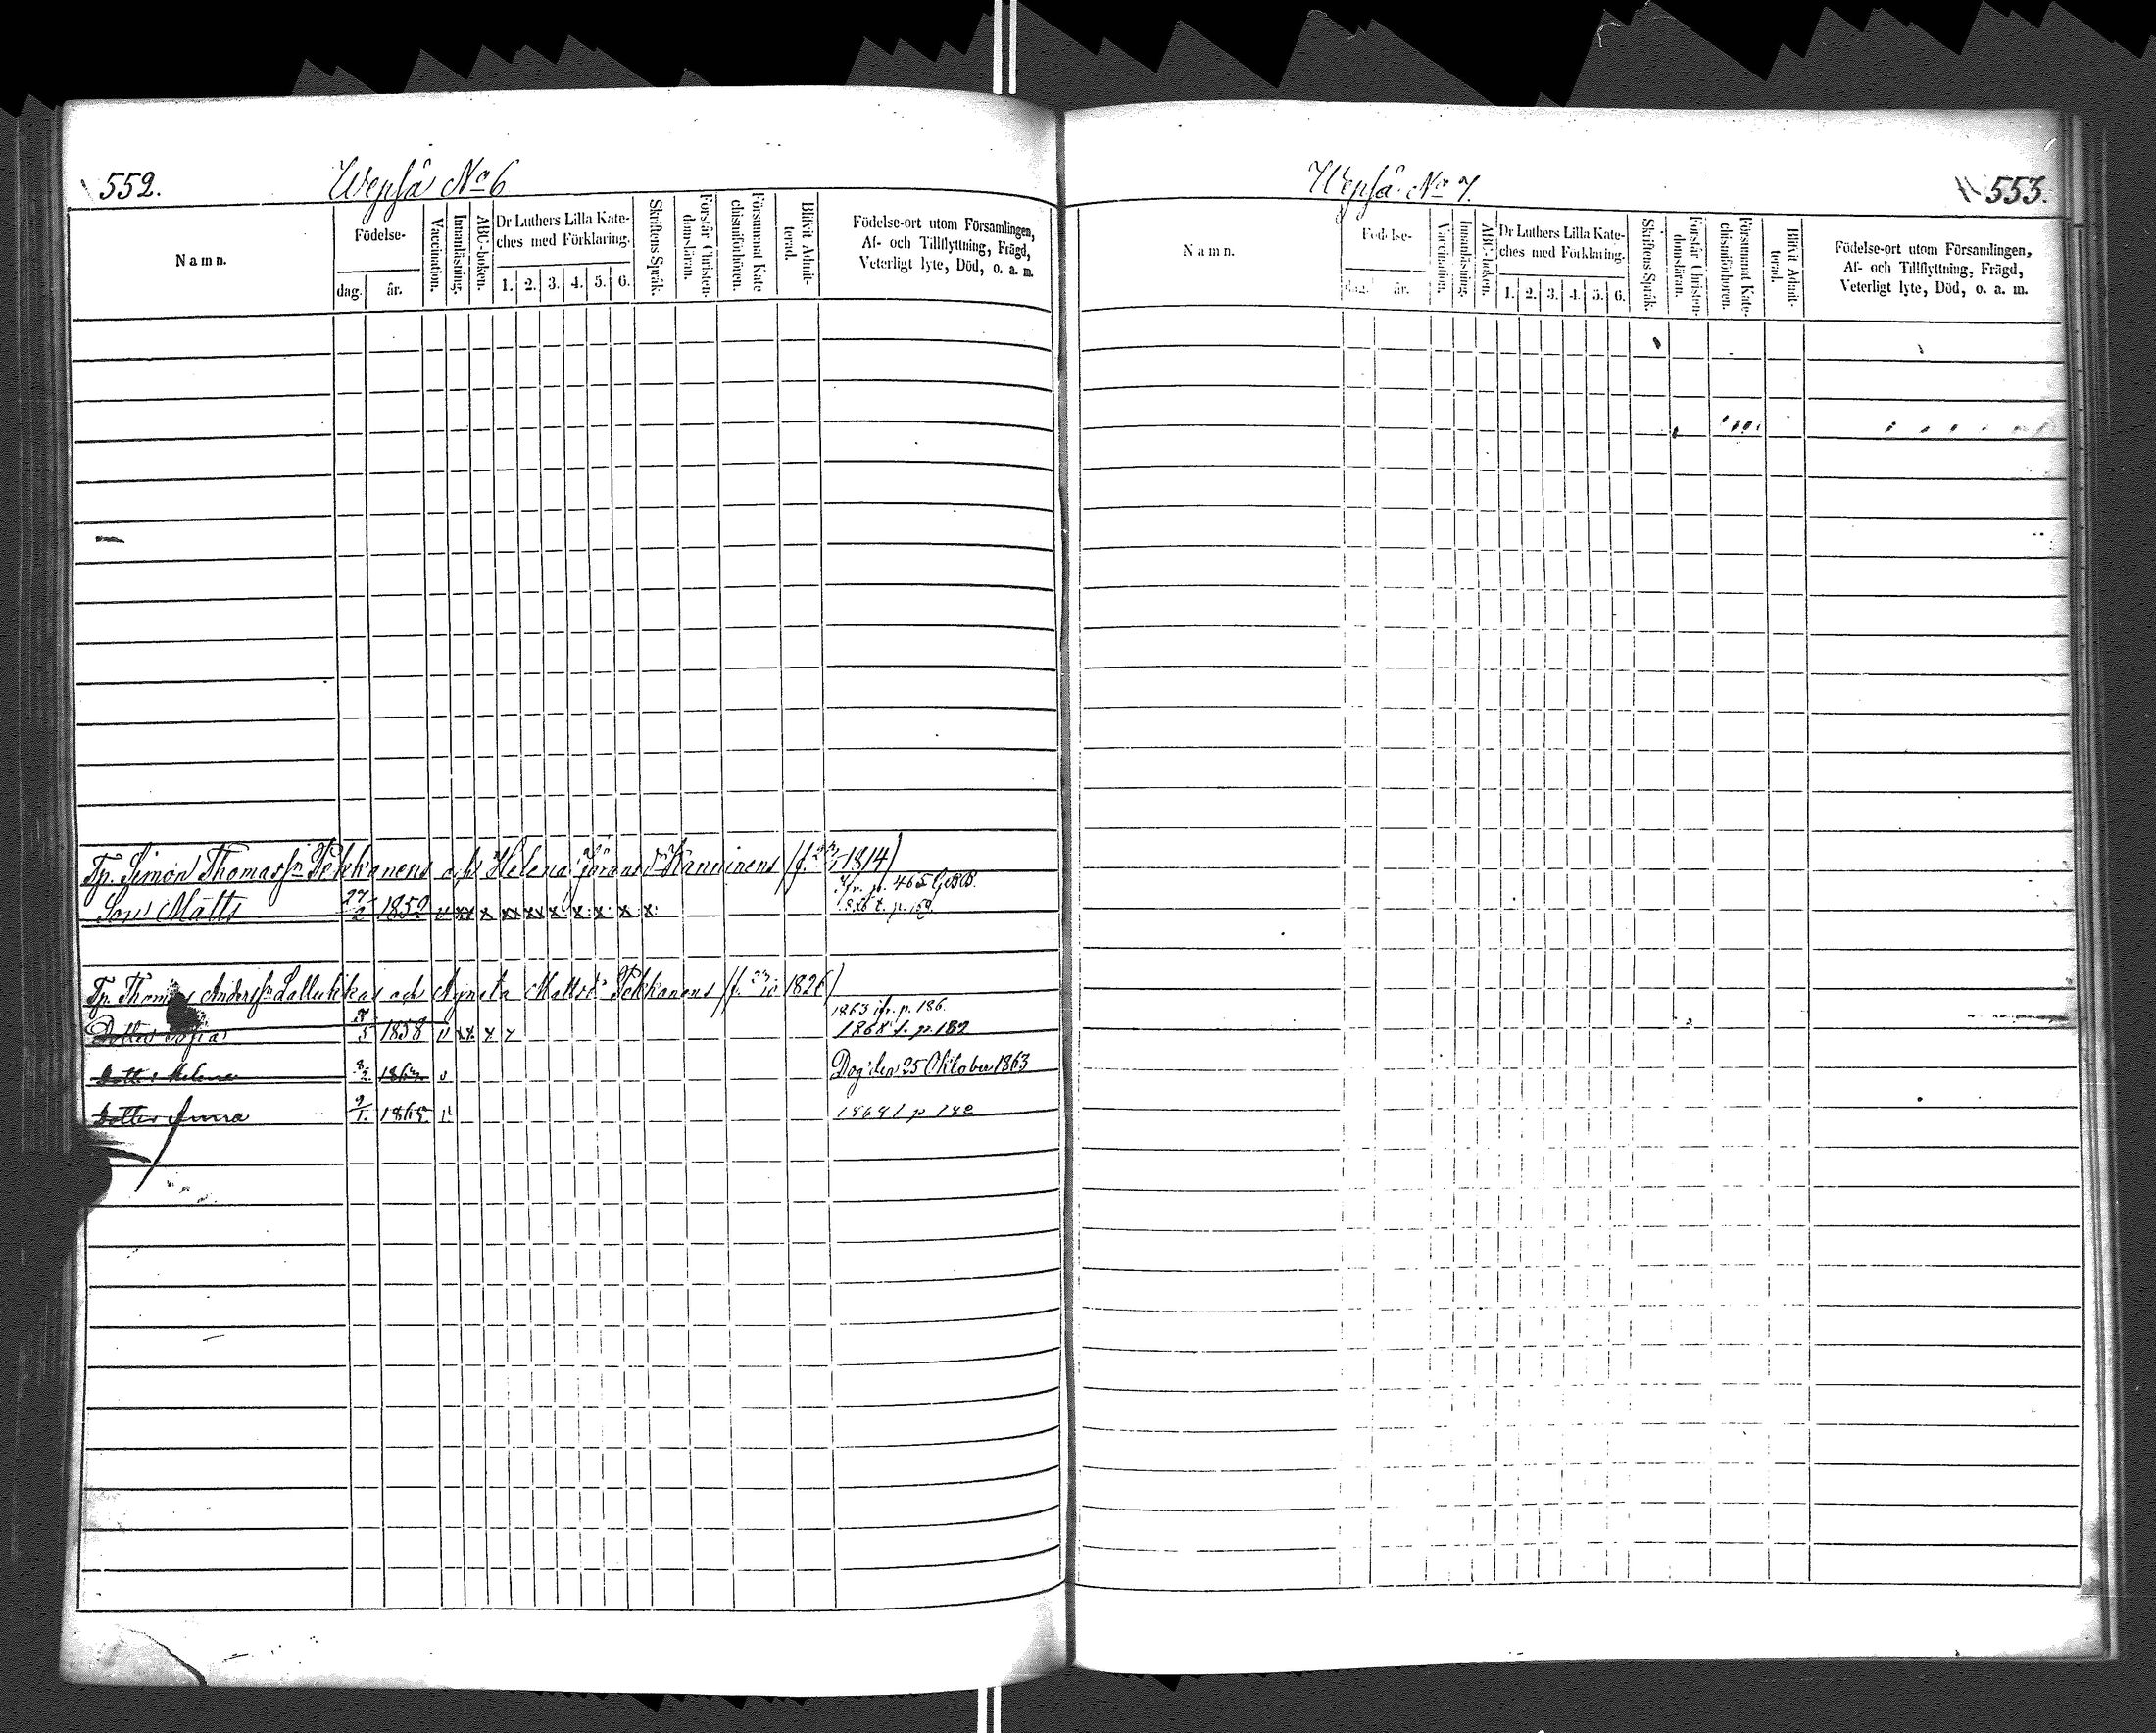 552. Wepsä No 6
Namn.
Födelse-
dag. år.
Vaccination.
Innanläsning.
ABC-boken.
Dr Luthers Lilla Kate-
ches med Förklaring.
1. 2. 3. 4. 5. 6.
Skriftens Språk.
Förstår Christen-
domsläran.
Försummat Kate-
chismiförhören.
Blifvit Admit-
terad.
Födelse-ort utom Församlingen,
Af- och Tillflyttning, Frägd,
Veterligt lyte, Död, o. a. m.
Tp. Simon Thomass'n Pekkanens och Helena Jörans dr Hanninens (f. 1814)
ifr. p. 465
Son Matts 27/2 1850 v xx x xx xx x: x: x: x x:
Tp. Thomas Anderss'n Lallukkas och Agneta Mattsd. Pekkanens (f. 1826)
1863 ifr. p. 186.
Dotter Sofia 7/5 1858 v xx x x 1868 t. p. 182
Dotter Helena 8/2 1863 v Dog den 25 Oktober 1863
Dotter Anna 9/1. 1865 v
Wepsä No 7. 553.
Namn.
Födelse-
dag. år.
Vaccination.
Innanläsning.
ABC-boken.
Dr Luthers Lilla Kate-
ches med Förklaring.
1. 2. 3. 4. 5. 6.
Skriftens Språk.
Förstår Christen-
domsläran.
Försummat Kate-
chismiförhören.
Blifvit Admit-
terad.
Födelse-ort utom Församlingen,
Af- och Tillflyttning, Frägd,
Veterligt lyte, Död, o. a. m.